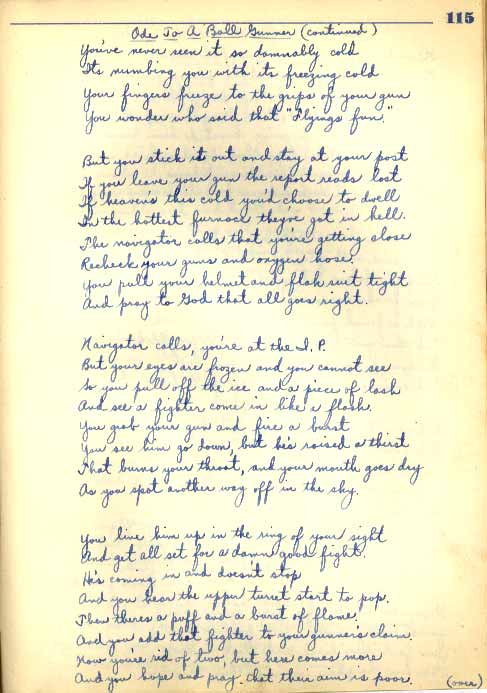 115
Ode To A Ball Gunner (continued)
You've never seen it so damnably cold
It's numbing you with its freezing cold
Your fingers freeze to the grips of your gun
You wonder who said that "Flyings fun."
But you stick it out and stay at your post
If you leave your gun the report reads lost
If heavens this cold you'd choose to dwell
In the hottest furnace they've got in hell.
The navigator calls that you're getting close
Recheck your guns and oxygen hose.
You pull your helmet and flak suit tight
And pray to God that all goes right.
Navigator calls, you're at the I.P.
But your eyes are frozen and you cannot see
So you pull off the ice and a piece of lash
And see a fighter come in like a flash.
You grab your gun and fire a burst
You see him go down, but he's raised a thirst
That burns your throat, and your mouth goes dry
As you spot another way off in the sky.
You line him up in the ring of your sight
And get all set for a damn good fight.
He's coming in and doesn't stop
And you hear the upper turret start to pop.
Then theres a puff and a burst of flame,
And you add that fighter to your gunner's claim.
Now you're rid of two, but here comes more
And you hope and pray that their aim is poor.
(over)